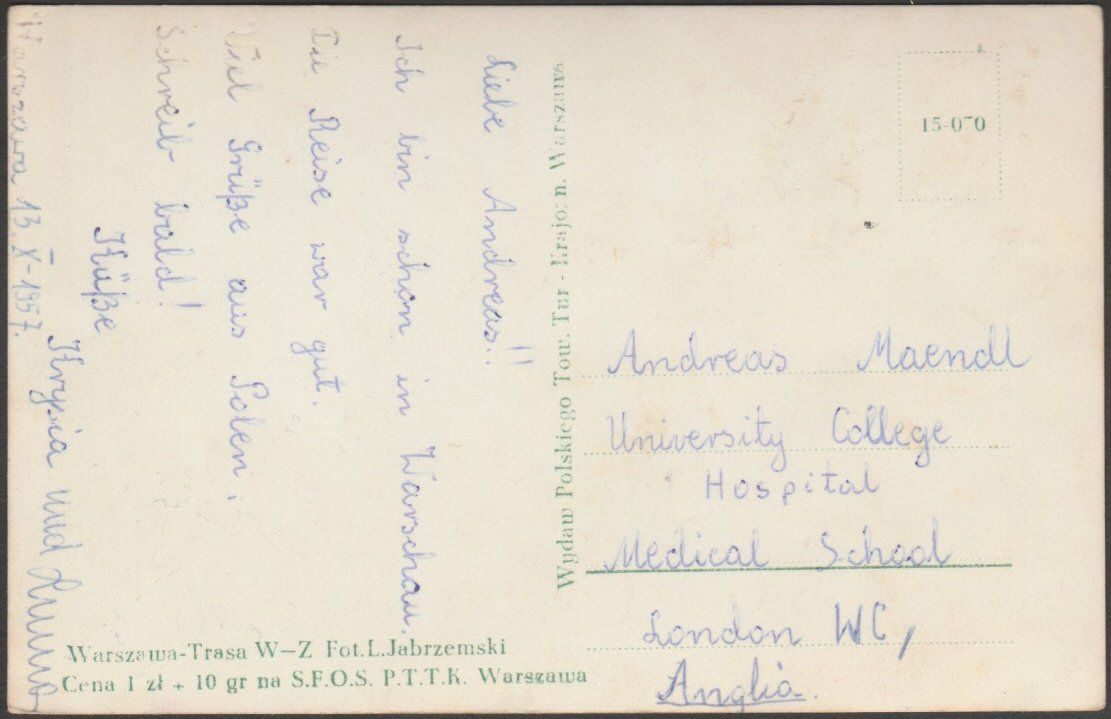 Liebe Andreas!!
Ich bin schon in Warschau.
Die Reise war gut.
Viel Grüße aus Polen.
Schreib bald!
Küße
Krysia und
Warszawa 13.X-1957.
Wydaw Polskiego Tow. Tur - Krajozn. Warszawa
15-070
Andreas Maendl
University College
Hospital
Medical School
London WC,
Anglia.
Warszawa-Trasa W-Z Fot.L.Jabrzemski
Cena 1 zł + 10 gr na S.F.O.S. P.T.T.K. Warszawa